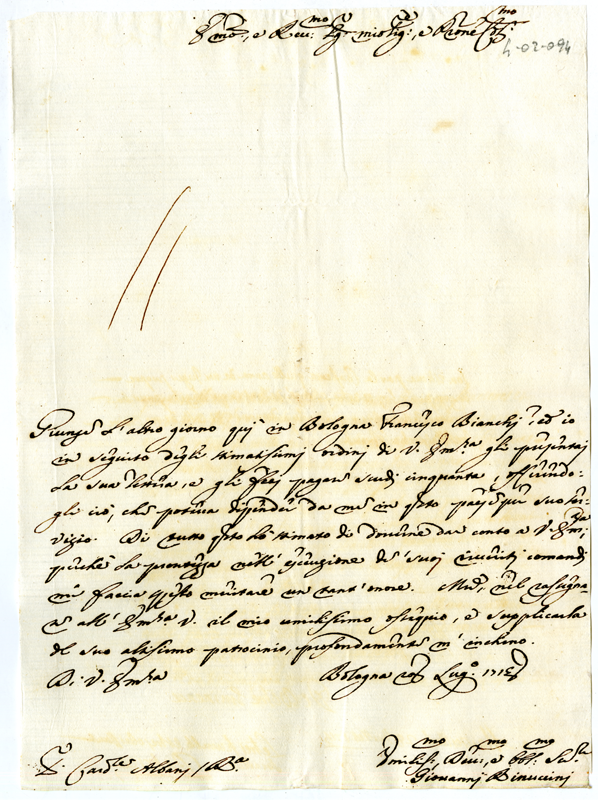 Emo, e Reu.mo Sig.r mio Sig.r, e Pron̄e Col.mo
4-02-094
Giunse l'altro giorno quì in Bologna Francesco Bianchj, ed io
in seguito degli stimatissimj ordinj di V. Em̄za gli presentaj
la sua lettera, e gli fecj pagare scudj cinquanta, offerendo-
gli ciò, che poteua dipender da me in q̄sto paese per suo ser-
vizio. Di tutto q̄sto hò stimato di douerne dar conto a V. Em̄za,
perche la prontezza nell' esecuzione de' suoj riueritj comandj
mi faccia spesso meritare un tant' onore. Mentre, nel rassegna-
re all' Em̄za V. il mio umilissimo ossequio, e supplicarla
del suo altissimo patrocinio, profondamente m' inchino.
Di V. Em̄za Bologna Lug.o
S.r Card.le Albanj
Vmiliss.mo, Deu.mo, et obb.mo Se.re
Giovannj Binuccinj